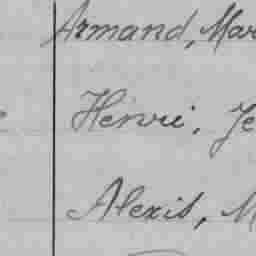 Armand, Mar
Henri, Je
Alexis, M